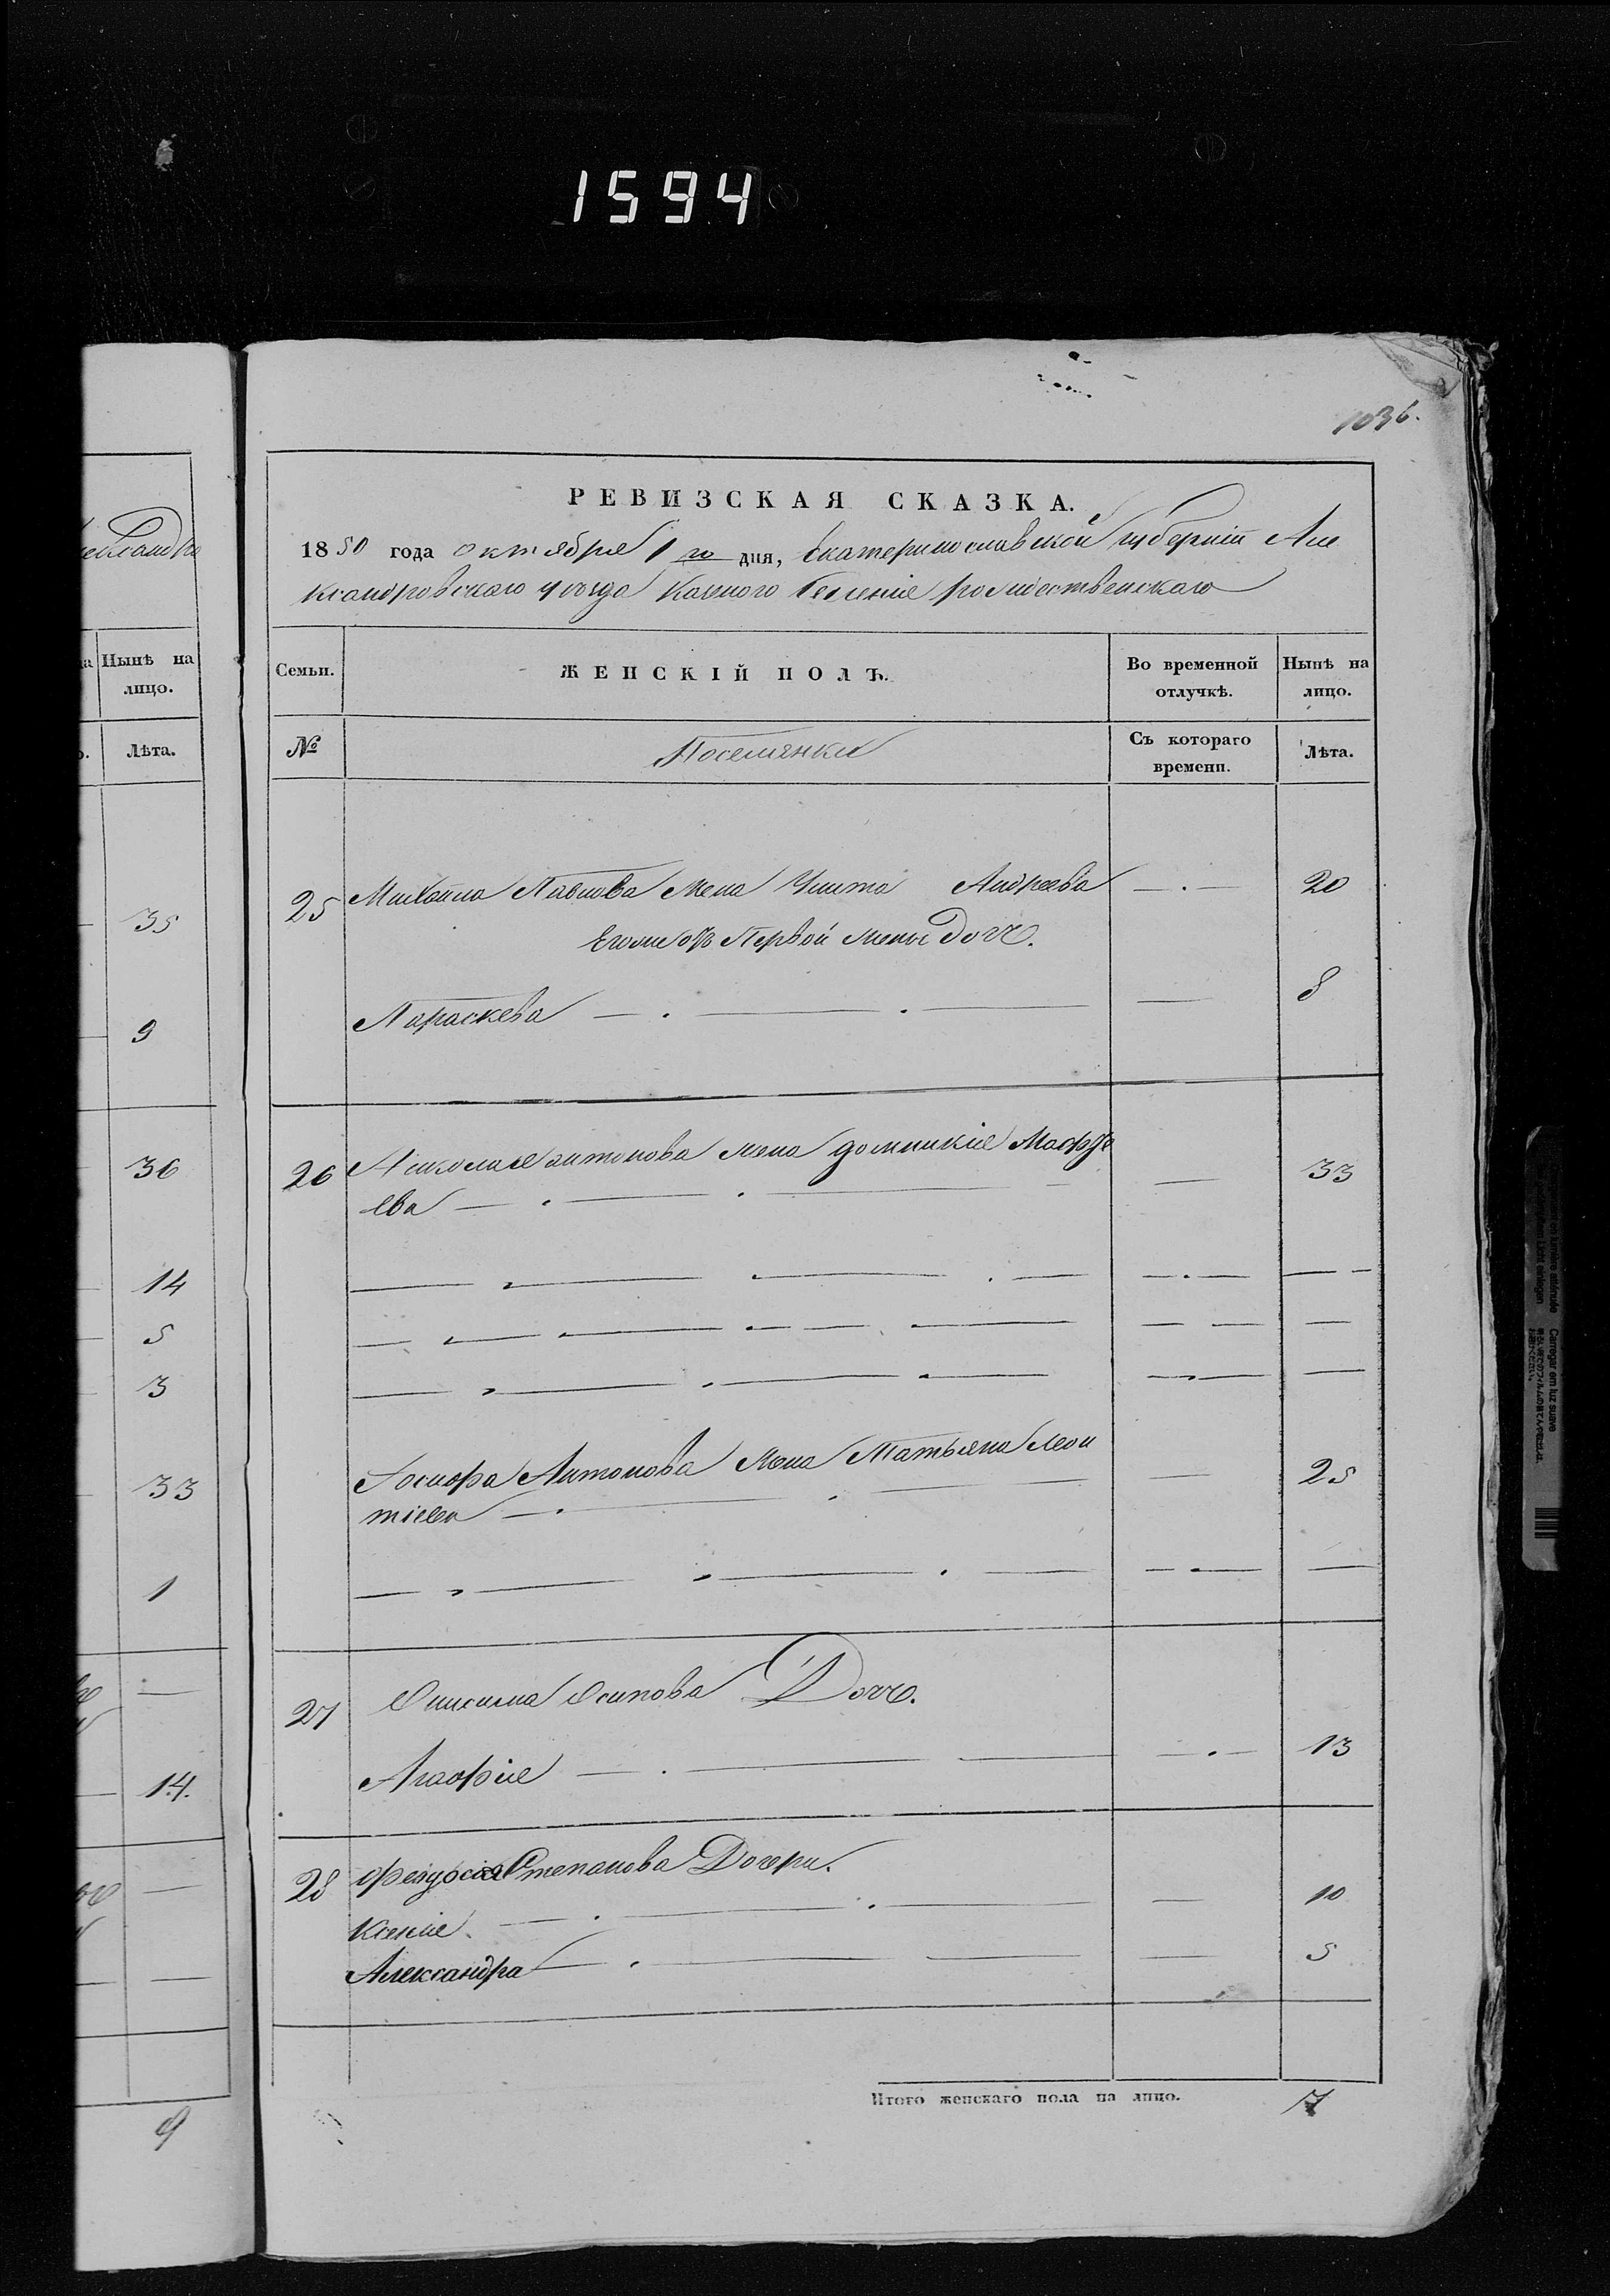 1594
1036.
РЕВИЗСКАЯ СКАЗКА.
1850 года октября 1 го дня, Екатеринославской губерніи Але
ксандровскаго уѣзда Казеного Селенія рождественскаго
Нынѣ на
лицо.
Лѣта.
Семьи.
ЖЕНСКІЙ ПОЛЪ.
Во временной
отлучкѣ.
Нынѣ на
лицо.
№
Поселянки
Съ котораго
времени.
Лѣта.
35
9
36
14
5
3
33
1
14.
9
25 Михаила Павлова жена Улита Андреева 20
Егоже отъ Первой жены Дочь.
Параскева 8
26 Николая антонова жена домникія Мафѣ
ева 33
Антонова жена Татьяна Леон
тіева 25
27 Онисима Осипова Дочь.
Агафія 13
28 Феодосія Степанова Дочери.
Ксенія 10
Александра 5
Итого женскаго пола на лицо. 7